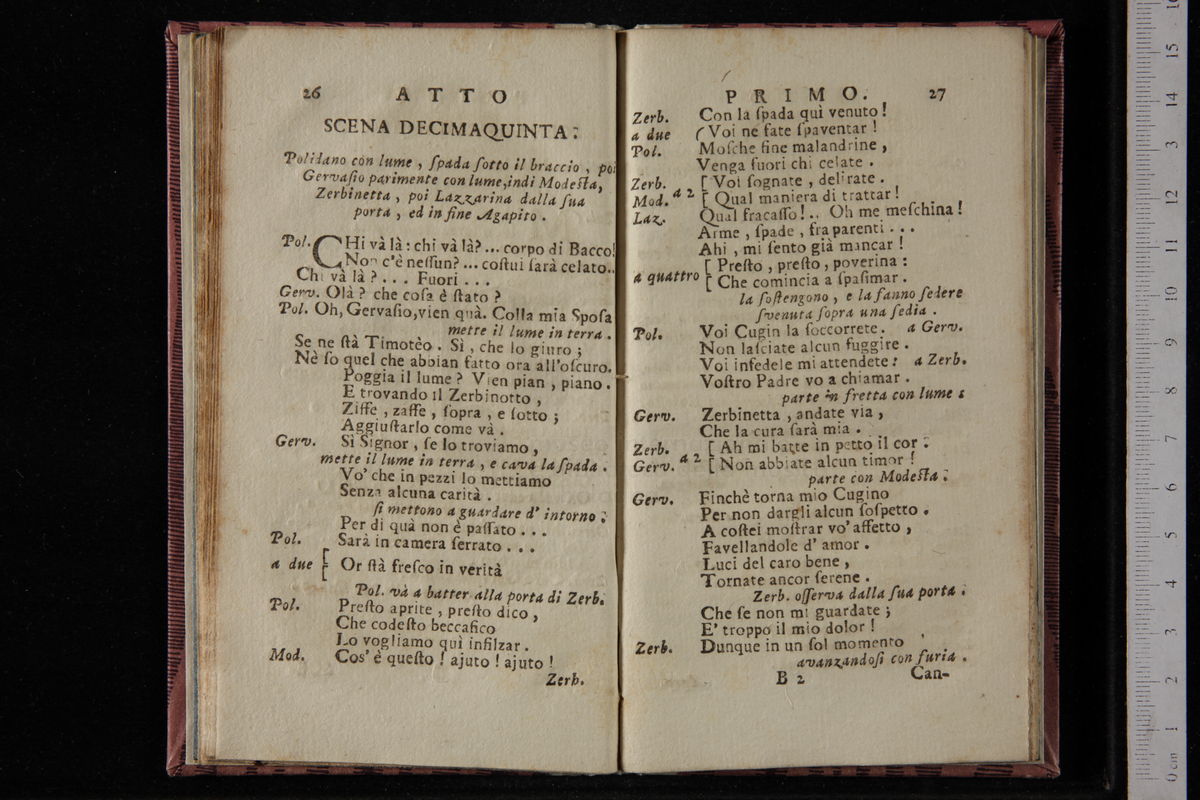 26 ATTO
SCENA DECIMAQUINTA:
Polidano con lume, ſpada ſotto il braccio, poi
Gervaſio parimente con lume, indi Modeſta,
Zerbinetta, poi Lazzarina dalla ſua
porta, ed in fine Agapito.
Pol. CHi và là: chi và là?... corpo di Bacco!
Non c'è neſſun?... coſtui ſarà celato..
Chi và là?... Fuori...
Gerv. Olà? che coſa è ſtato?
Pol. Oh, Gervaſio, vien quà. Colla mia Spoſa
mette il lume in terra.
Se ne ſtà Timotèo. Sì, che lo giuro;
Nè ſo quel che abbian fatto ora all'oſcuro.
Poggia il lume? Vien pian, piano.
E trovando il Zerbinotto,
Ziffe, zaffe, ſopra, e ſotto;
Aggiuſtarlo come và.
Gerv. Sì Signor, ſe lo troviamo,
mette il lume in terra, e cava la ſpada.
Vo' che in pezzi lo mettiamo
Senza alcuna carità.
ſi mettono a guardare d' intorno:
Per di quà non è paſſato...
Pol. Sarà in camera ſerrato...
a due [ Or ſtà freſco in verità
Pol. và a batter alla porta di Zerb.
Pol. Preſto aprite, preſto dico,
Che codeſto beccafico
Lo vogliamo quì infilzar.
Mod. Cos' è queſto! ajuto! ajuto!
Zerb.
PRIMO. 27
Zerb. Con la ſpada quì venuto!
a due ( Voi ne fate ſpaventar!
Pol. Moſche fine malandrine,
Venga fuori chi celate.
Zerb. [ Voi ſognate, delirate.
Mod. a 2 [ Qual maniera di trattar!
Laz. Qual fracaſſo!.. Oh me meſchina!
Arme, ſpade, fra parenti...
Ahi, mi ſento già mancar!
a quattro [ Preſto, preſto, poverina:
[ Che comincia a ſpaſimar.
la ſoſtengono, e la fanno ſedere
ſvenuta ſopra una ſedia.
Pol. Voi Cugin la ſoccorrete. a Gerv.
Non laſciate alcun fuggire.
Voi infedele mi attendete: a Zerb.
Voſtro Padre vo a chiamar.
parte in fretta con lume
Gerv. Zerbinetta, andate via,
Che la cura ſarà mia.
Zerb. [ Ah mi batte in petto il cor:
Gerv. a 2 [ Non abbiate alcun timor!
parte con Modeſta:
Gerv. Finchè torna mio Cugino
Per non dargli alcun ſoſpetto.
A coſtei moſtrar vo' affetto,
Favellandole d' amor.
Luci del caro bene,
Tornate ancor ſerene.
Zerb. oſſerva dalla ſua porta:
Che ſe non mi guardate;
E' troppo il mio dolor!
Zerb. Dunque in un ſol momento
avanzandoſi con furia.
B 2 Can-